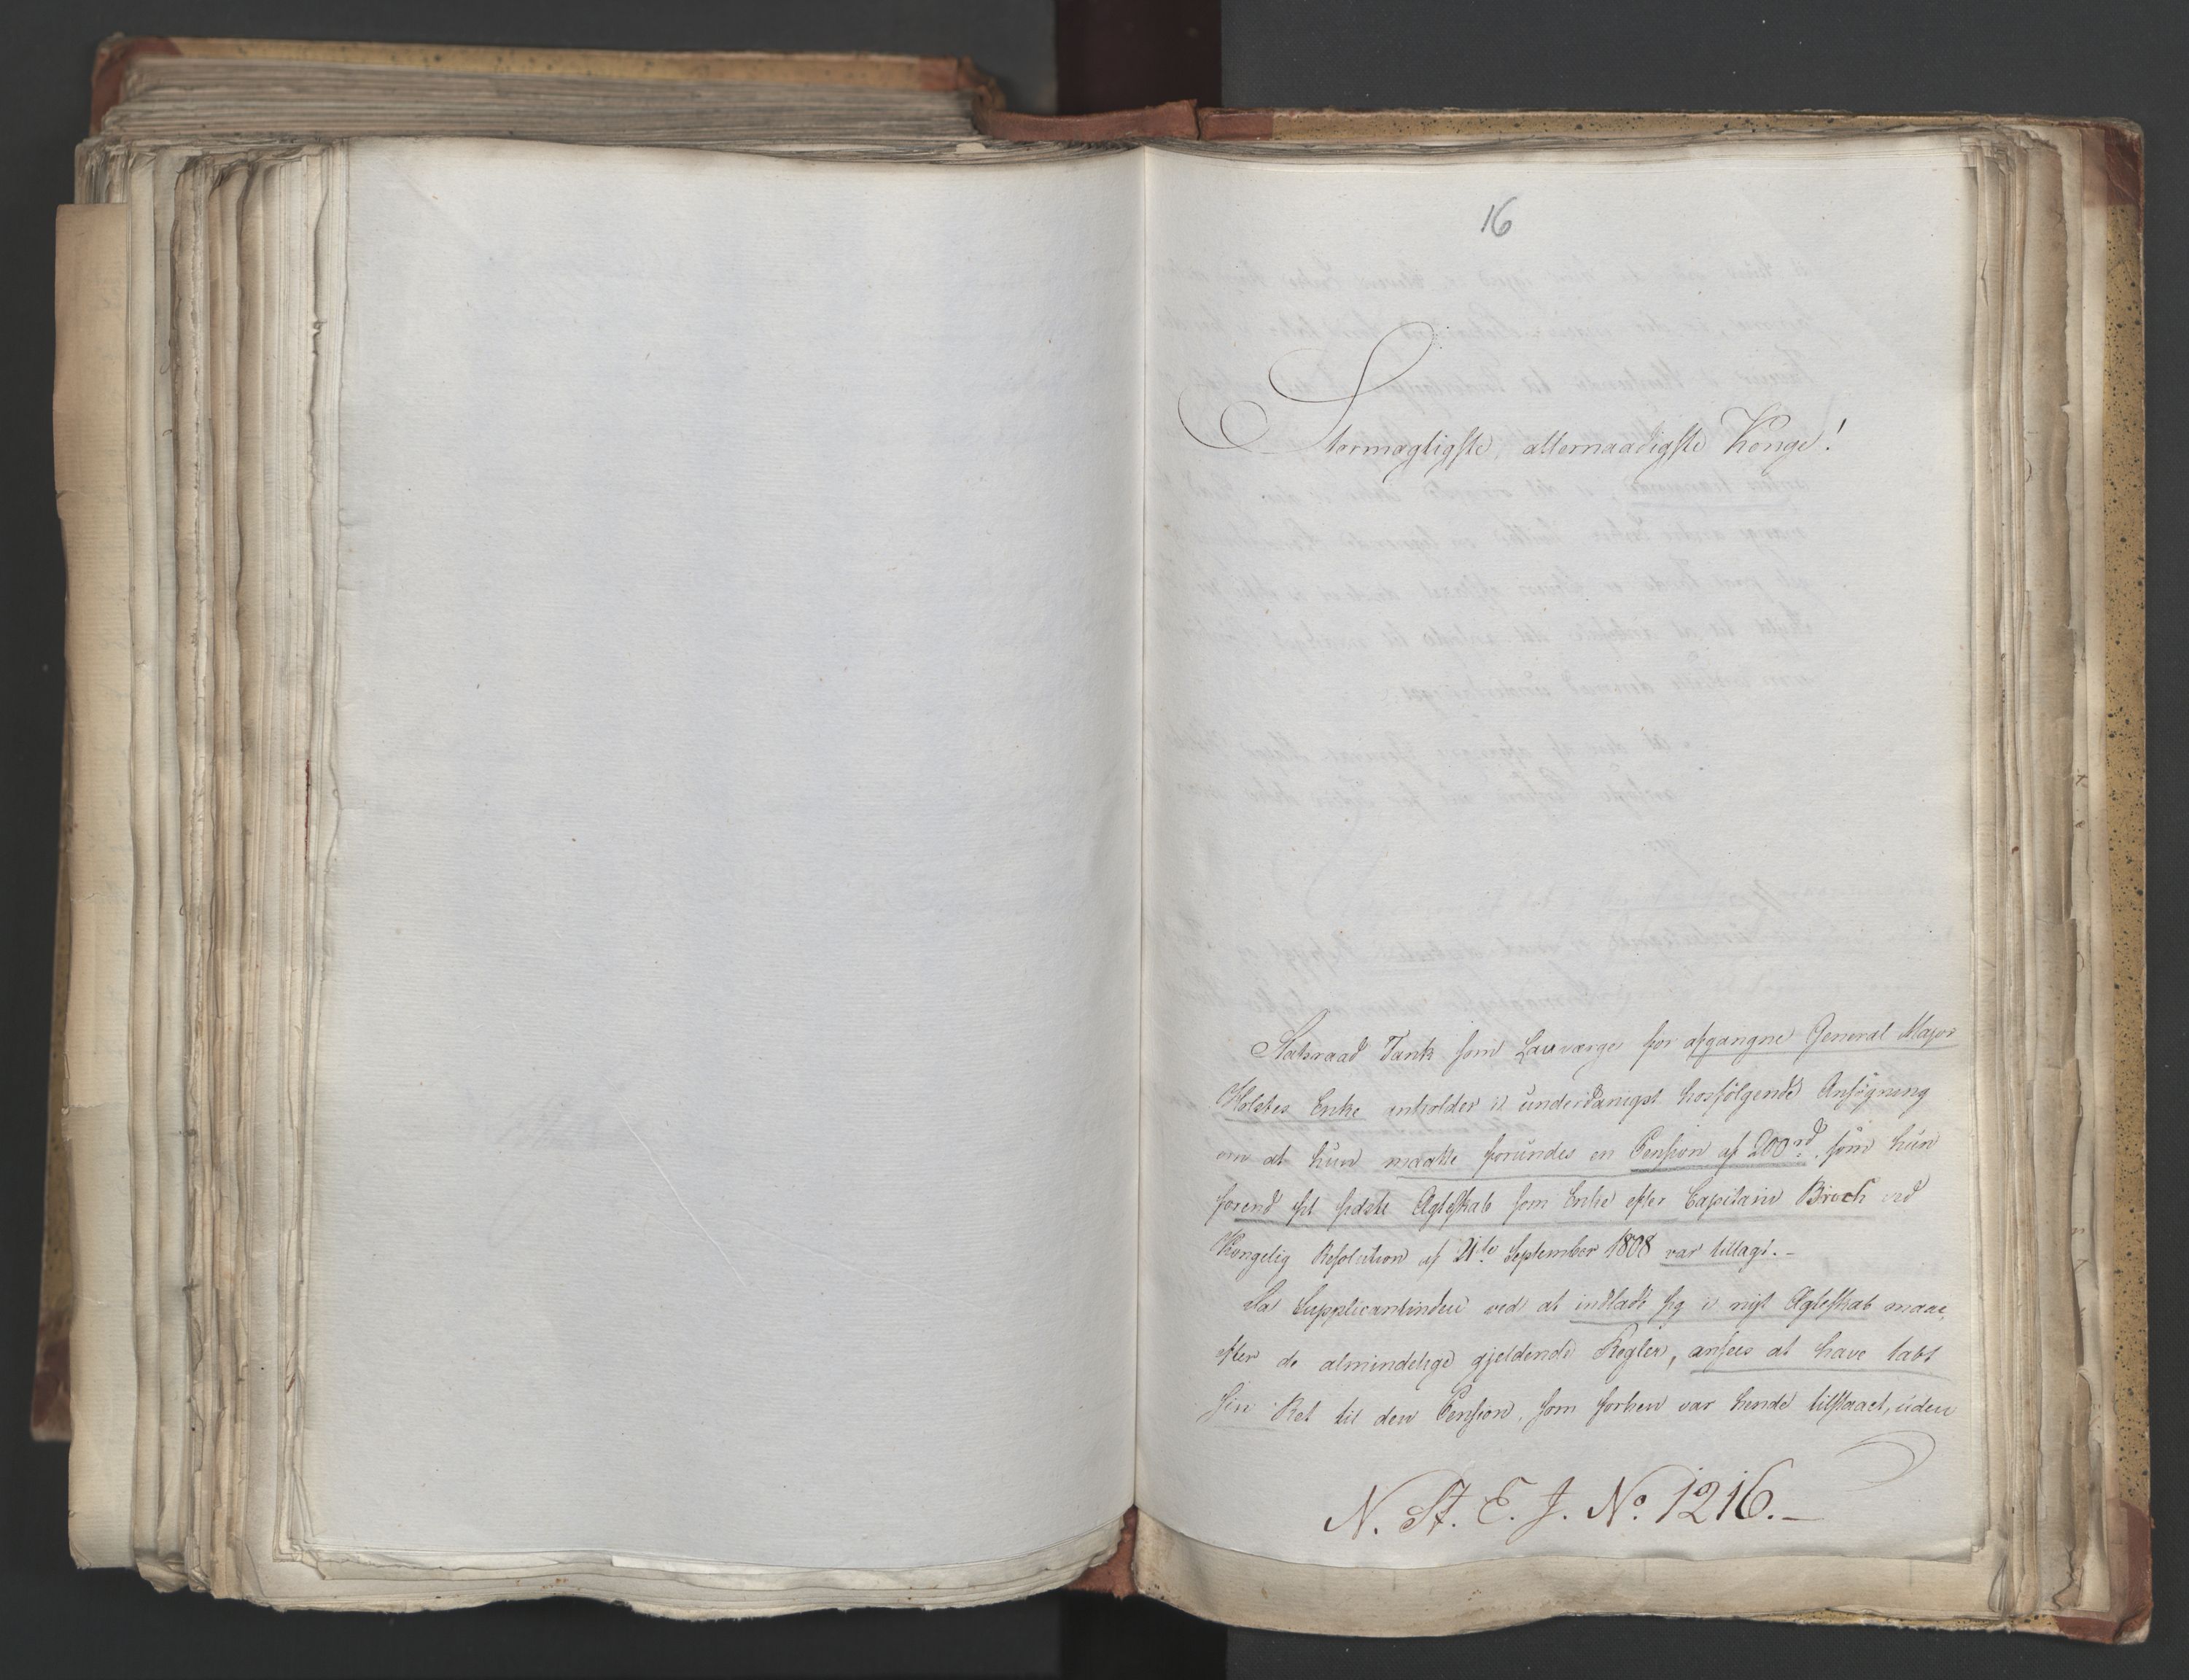 16
Stormægtigste, allernaadigste Konge!
Statsraad Tank som Lauværge for afgangne General Major
Holstes Enke anholder i underdanigst hosfølgende Ansøgning
om at hun maatte forundes en Pension af 200 rd. som hun
forend sit sidste Ægteskab som Enke efter Capitain Broch ved
Kongelig Resolution af 21de September 1808 var tillagt. –
Da Supplicantinden ved at indlade sig i nyt Ægteskab maae,
efter de almindelige gjeldende Regler, ansees at have tabt
sin Ret til den Pension, som forhen var hende tilstaaet, uden
N. St. E. J. No. 1216. –